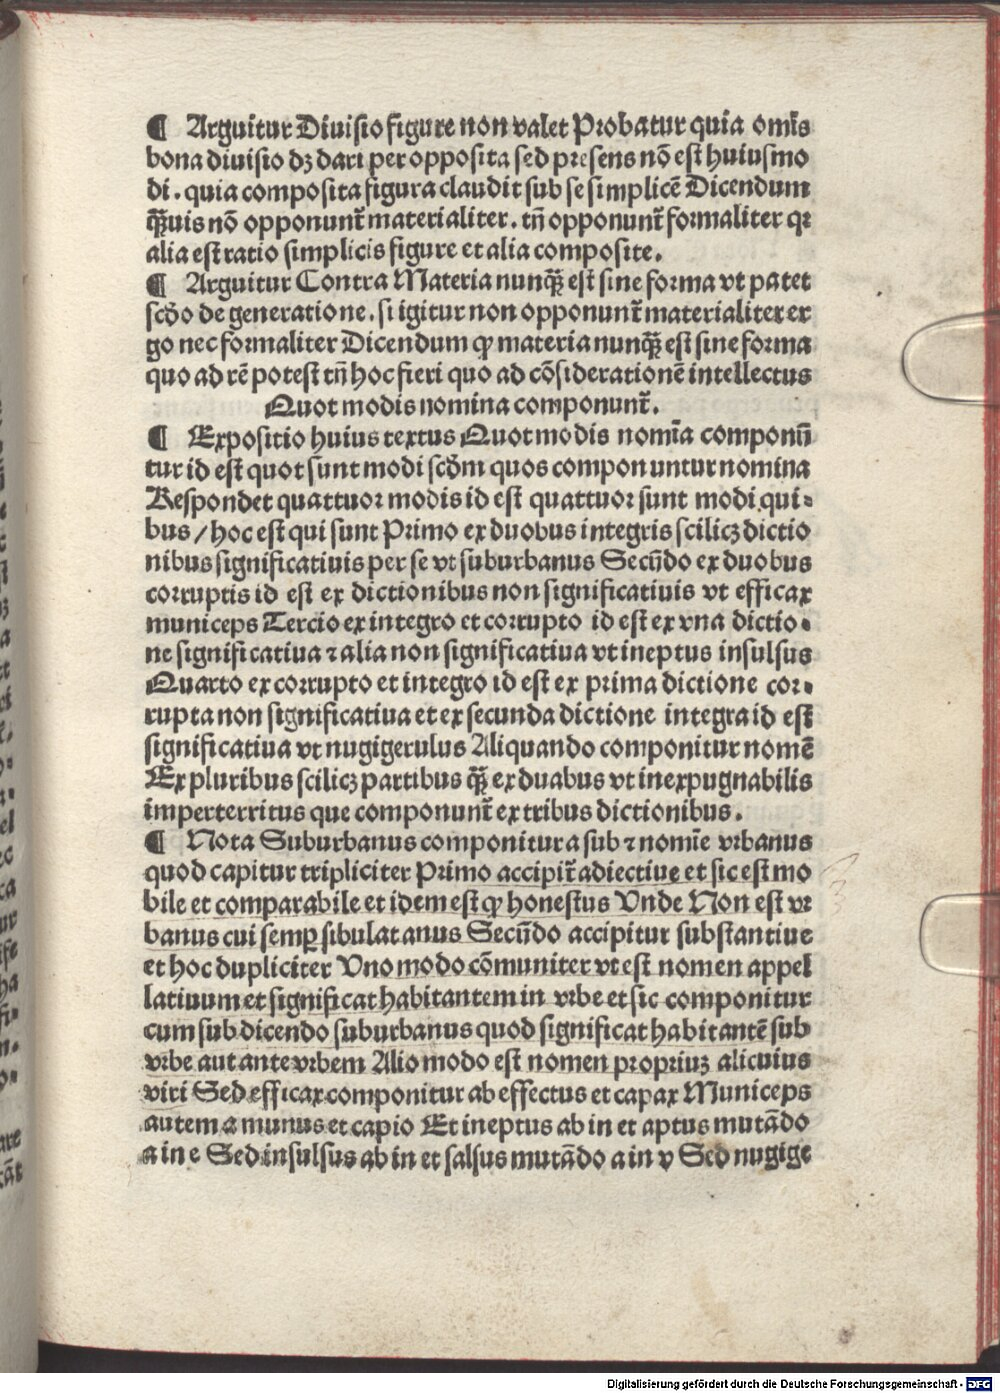 ¶ Arguitur Diuisio figure non valet Probatur quia om̄is
bona diuisio dꝫ dari per opposita sed presens nō est huiusmo
di. quia composita figura claudit sub se simplicē Dicendum
qᷓꝫuis nō opponunt᷑ materialiter. tn̄ opponunt᷑ formaliter qꝛ
alia est ratio simplicis figure et alia composite.
¶ Arguitur Contra Materia nunqᷓꝫ est sine forma vt patet
scḋo de generatione. si igitur non opponunt᷑ materialiter er
go nec formaliter Dicendum ꝙ materia nunqᷓꝫ est sine forma
quo ad rē potest tn̄ hoc fieri quo ad cōsiderationē intellectus
Quot modis nomina componunt᷑.
¶ Expositio huius textus Quot modis nomīa componū
tur id est quot sunt modi scḋm quos componuntur nomina
Respondet quattuor modis id est quattuor sunt modi qui-
bus / hoc est qui sunt Primo ex duobus integris scilicꝫ dictio
nibus significatiuis per se vt suburbanus Secūdo ex duobus
corruptis id est ex dictionibus non significatiuis vt efficax
municeps Tercio ex integro et corrupto id est ex vna dictio-
ne significatiua ⁊ alia non significatiua vt ineptus insulsus
Quarto ex corrupto et integro id est ex prima dictione cor-
rupta non significatiua et ex secunda dictione integra id est
significatiua vt nugigerulus Aliquando componitur nomē
Ex pluribus scilicꝫ partibus qᷓꝫ ex duabus vt inexpugnabilis
imperterritus que componunt᷑ ex tribus dictionibus.
¶ Nota Suburbanus componitur a sub ⁊ nomīe vrbanus
quod capitur tripliciter Primo accipit᷑ adiectiue et sic est mo
bile et comparabile et idem est ꝙ honestus Vnde Non est vr
banus cui semꝑ sibulat anus Secūdo accipitur substantiue
et hoc dupliciter Vno modo cōmuniter vt est nomen appel
latiuum et significat habitantem in vrbe et sic componitur
cum sub dicendo suburbanus quod significat habitantē sub
vrbe aut ante vrbem Alio modo est nomen propriuꝫ alicuius
viri Sed efficax componitur ab effectus et capax Municeps
autem a munus et capio Et ineptus ab in et aptus mutādo
a in e Sed insulsus ab in et salsus mutādo a in v Sed nugige
Digitalisierung gefördert durch die Deutsche Forschungsgemeinschaft - DFG